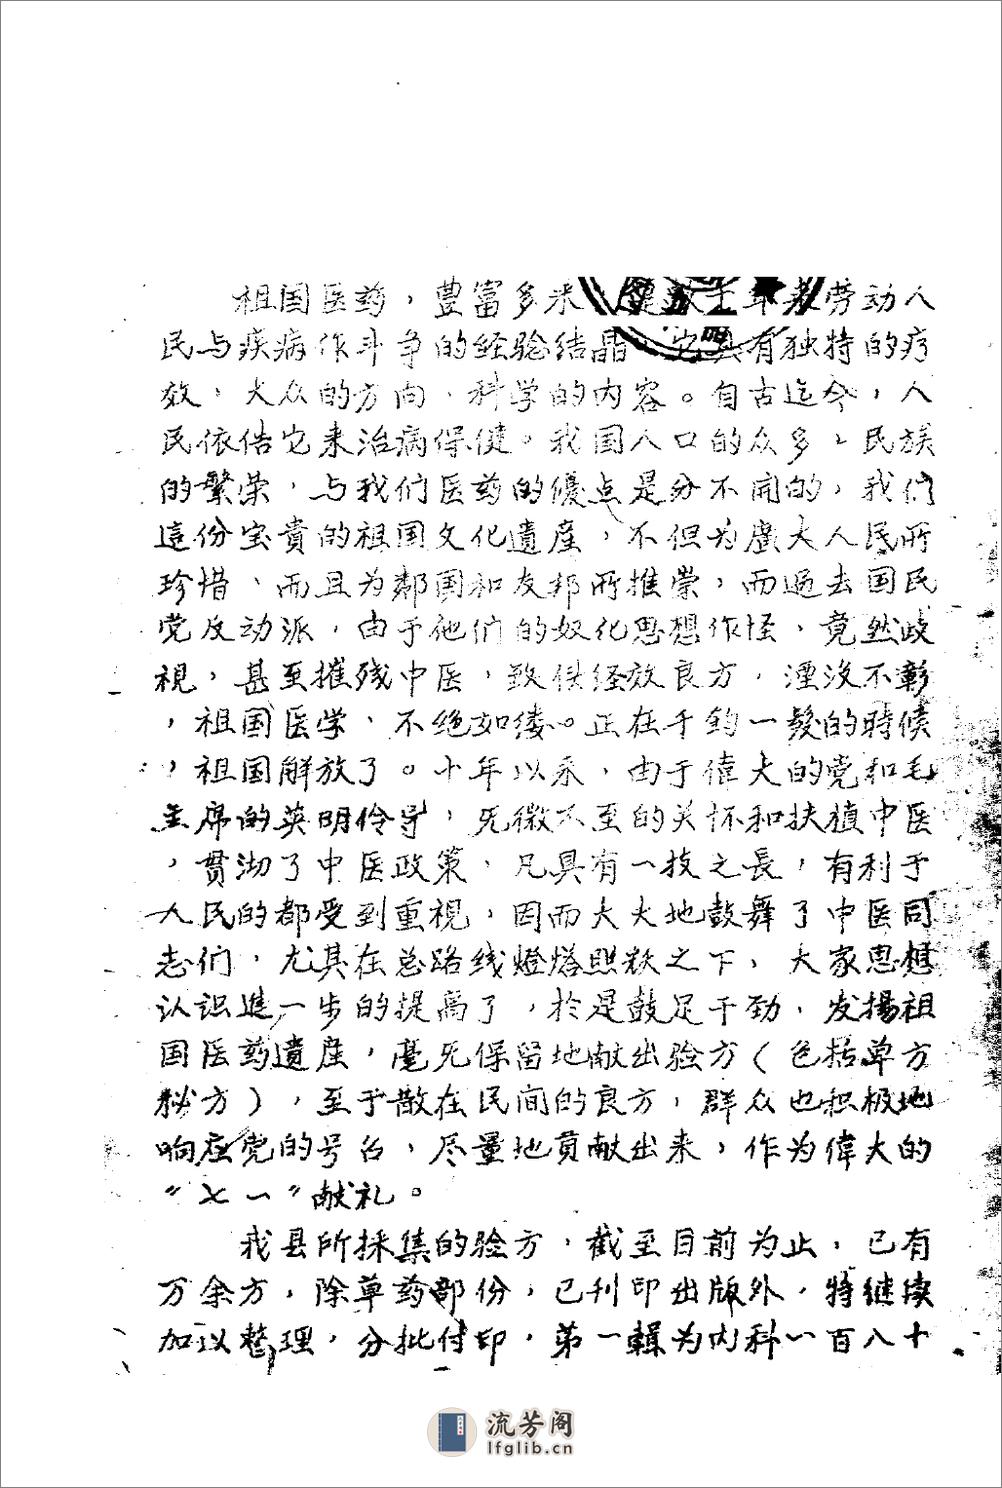 祖国医药，豊富多釆，是数千年来劳动人
民与疾病作斗争的经验结晶，它具有独特的疗
效，大众的方向，科学的内容。自古迄今，人
民依俈它来治病保健。我国人口的众多，民族
的繁荣，与我们医药的優点是分不開的，我们
這份宝貴的祖国文化遺産，不但为廣大人民所
珍惜，而且为鄰国和友邦所推崇，而過去国民
党反动派，由于他们的奴化思想作怪，竟然歧
視，甚至摧残中医，致使经放良方，湮没不彰
，祖国医学，不绝如缕。正在千鈞一髮的時候
，祖国解放了。十年以来，由于偉大的党和毛
主席的英明伶导，无微不至的关怀和扶植中医
，贯沏了中医政策，凡具有一技之長，有利于
人民的都受到重視，因而大大地鼓舞了中医同
志们，尤其在总路线燈塔照躿之下，大家思想
认识進一步的提高了，於是鼓足干劲，发揚祖
国医药遺産，毫无保留地献出验方（包括单方
秘方），至于散在民间的良方，群众也积极地
响应党的号召，尽量地貢献出来，作为偉大的
“七一”献礼。
我县所採集的验方，截至目前为止，已有
万余方，除草药部份，已刊印出版外，特继续
加以整理，分批付印，第一輯为内科一百八十
流芳阁
lfglib.cn